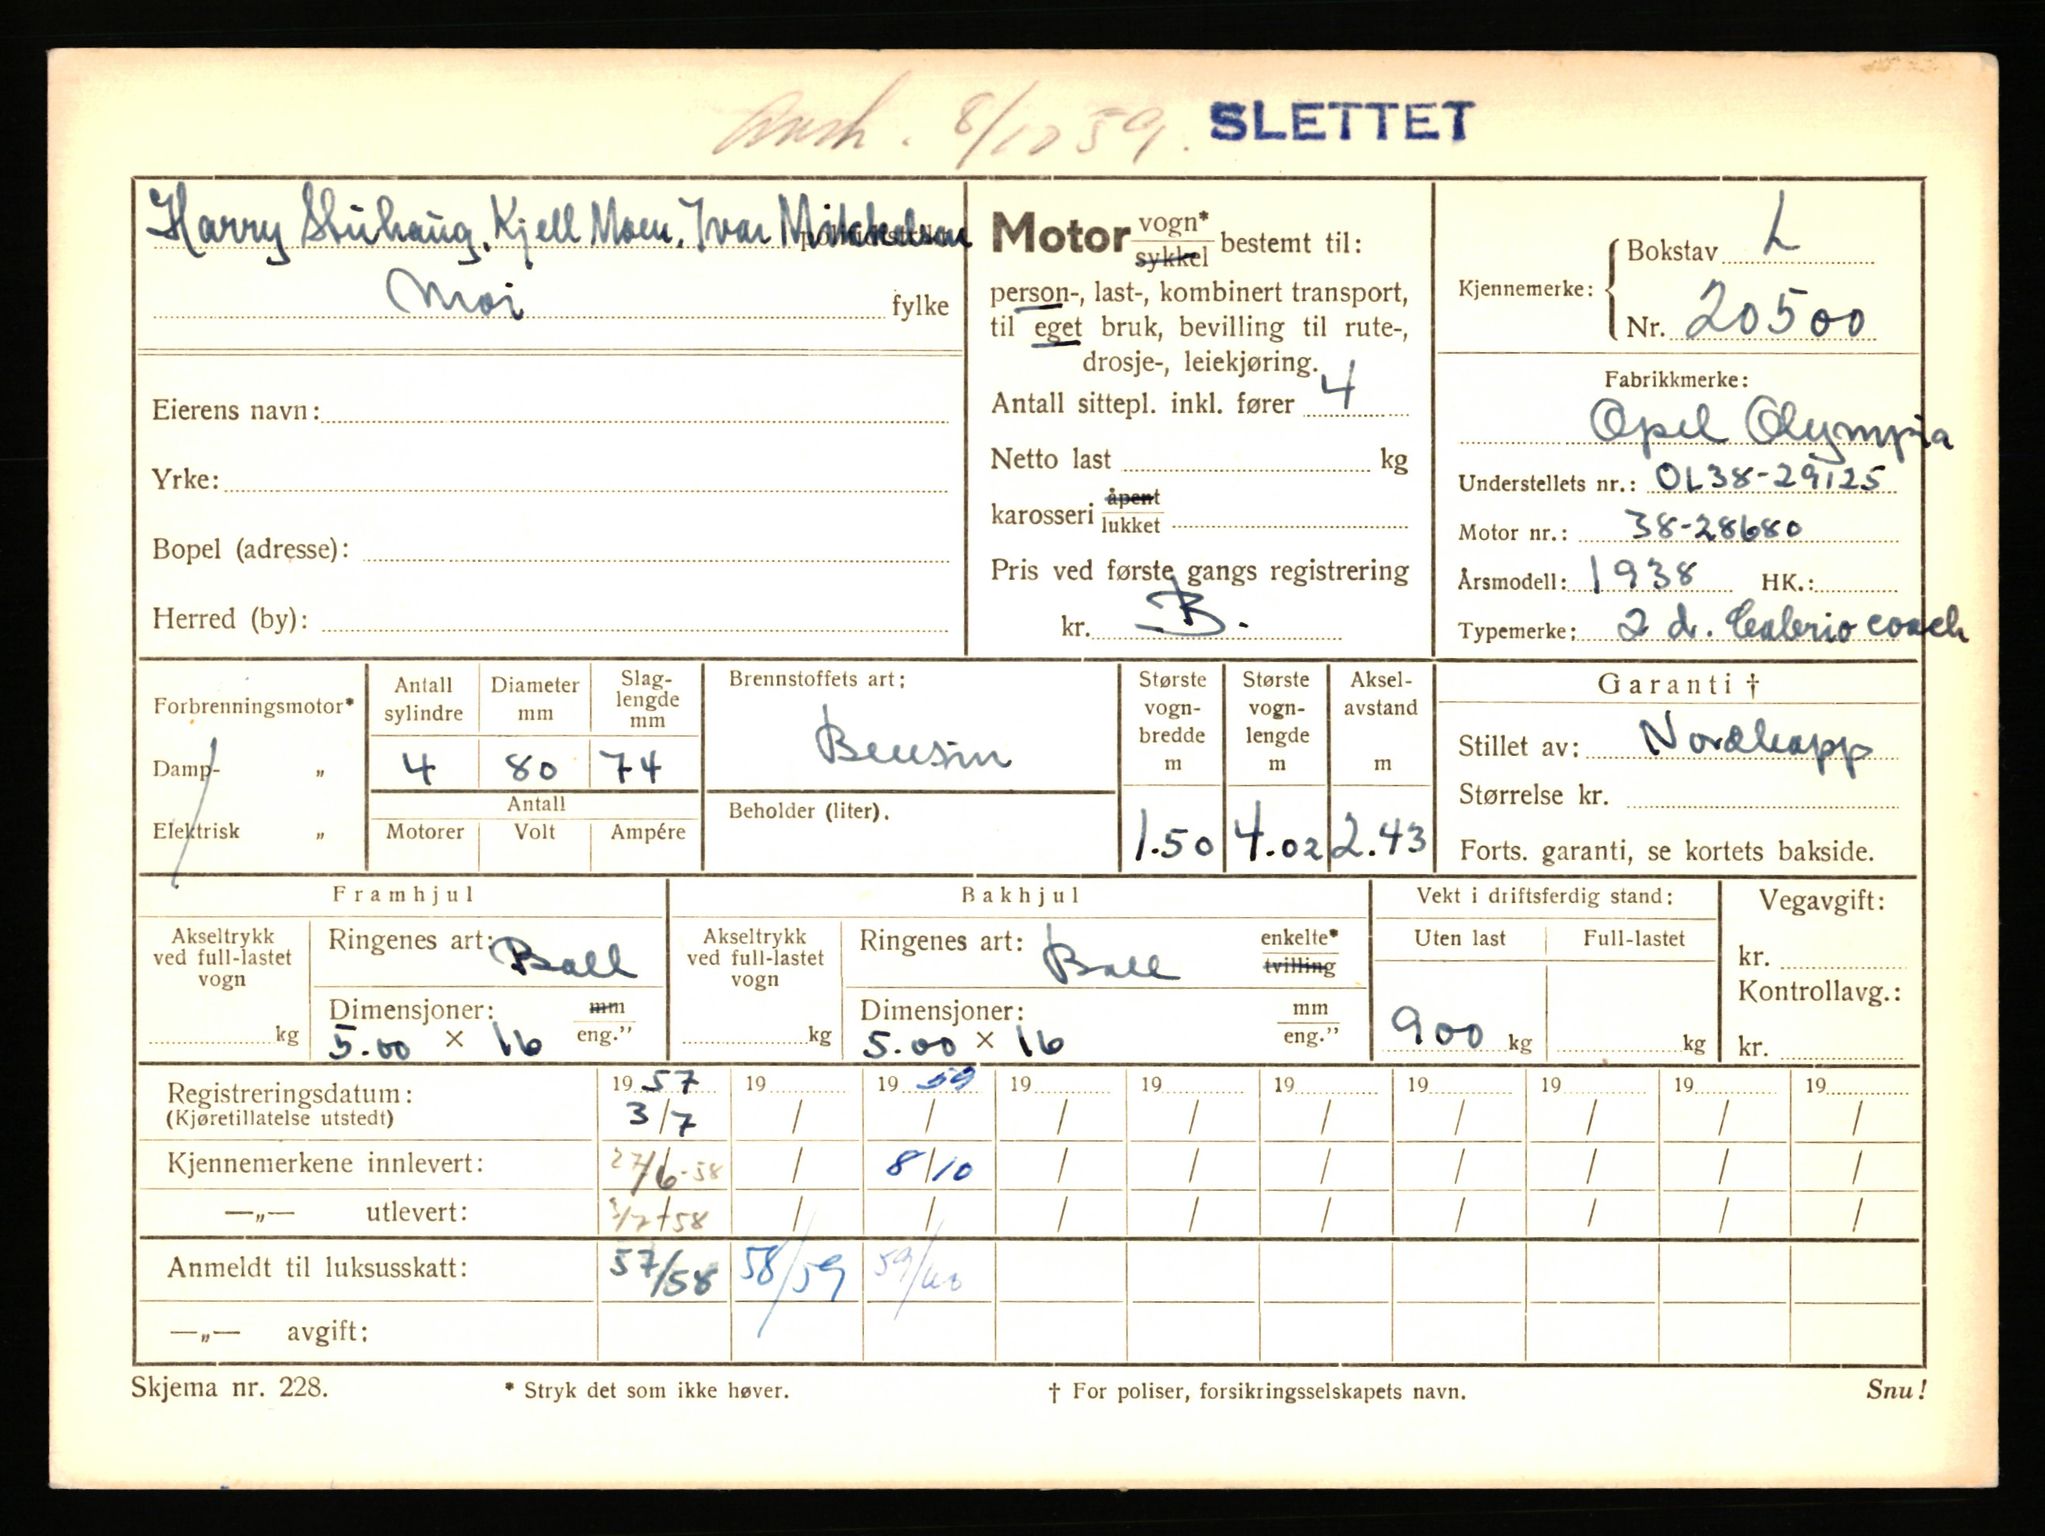 8/10 59. SLETTET
Harry Stuhaug, Kjell Moen, Ivar Mikkelsen
Moi fylke
Eierens navn:
Yrke:
Bopel (adresse):
Herred (by):
Motor vogn* sykkel bestemt til:
person-, last-, kombinert transport,
til eget bruk, bevilling til rute-,
drosje-, leiekjøring.
Antall sittepl. inkl. fører 4
Netto last kg
karosseri åpent lukket
Pris ved første gangs registrering
kr. B.
Kjennemerke: Bokstav L
Nr. 20500
Fabrikkmerke:
Opel Olympia
Understellets nr.: OL38-29125
Motor nr.: 38-28680
Årsmodell: 1938 HK.:
Typemerke: 2 d. Cabrio coach
Forbrenningsmotor*
Damp- "
Elektrisk "
Antall sylindre
Diameter mm
Slaglengde mm
4 80 74
Antall
Motorer Volt Ampére
Brennstoffets art:
Bensin
Beholder (liter).
Største vognbredde m
1.50
Største vognlengde m
4.02
Akselavstand m
2.43
Garanti †
Stillet av: Nordkapp
Størrelse kr.
Forts. garanti, se kortets bakside.
Framhjul
Akseltrykk ved full-lastet vogn
kg
Ringenes art: Ball
Dimensjoner: mm eng."
5.00 × 16
Bakhjul
Akseltrykk ved full-lastet vogn
kg
Ringenes art: Ball enkelte* tvilling
Dimensjoner: mm eng."
5.00 × 16
Vekt i driftsferdig stand:
Uten last Full-lastet
900 kg kg
Vegavgift:
kr.
Kontrollavg.:
kr.
Registreringsdatum: 19 57 19 19 59 19 19 19 19 19 19 19
(Kjøretillatelse utstedt) 3/7 / / / / / / / / /
Kjennemerkene innlevert: 27/6-58 / 8/10 / / / / / / /
—„— utlevert: 3/7-58 / / / / / / / / /
Anmeldt til luksusskatt: 57/58 58/59 59/60
—„— avgift:
Skjema nr. 228. * Stryk det som ikke høver. † For poliser, forsikringsselskapets navn. Snu!